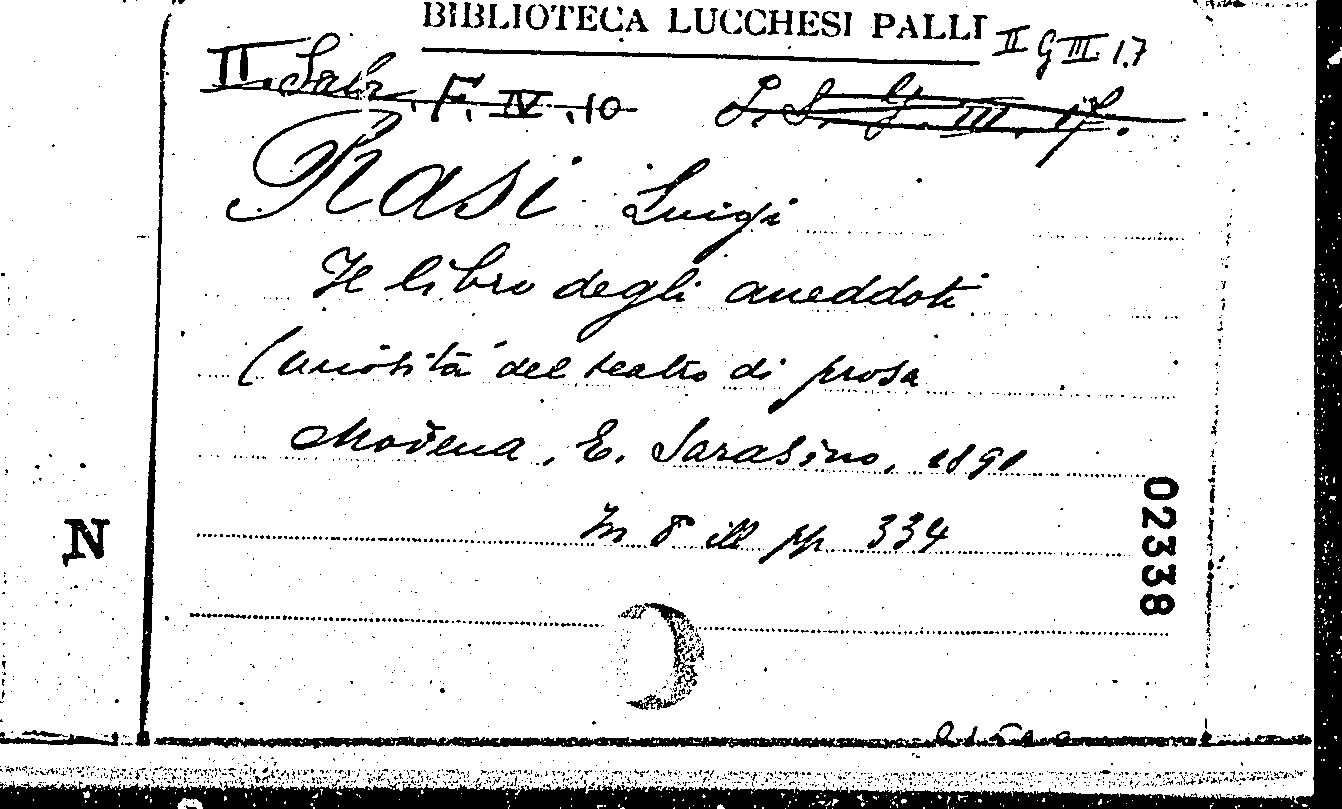 BIBLIOTECA LUCCHESI PALLI
II G III 17
II. Sala. F. IV. 10
Rasi Luigi
Il libro degli aneddoti
Curiosità del teatro di prosa
Modena, E. Sarasino, 1891
In 8 ill pp 334
N
02338